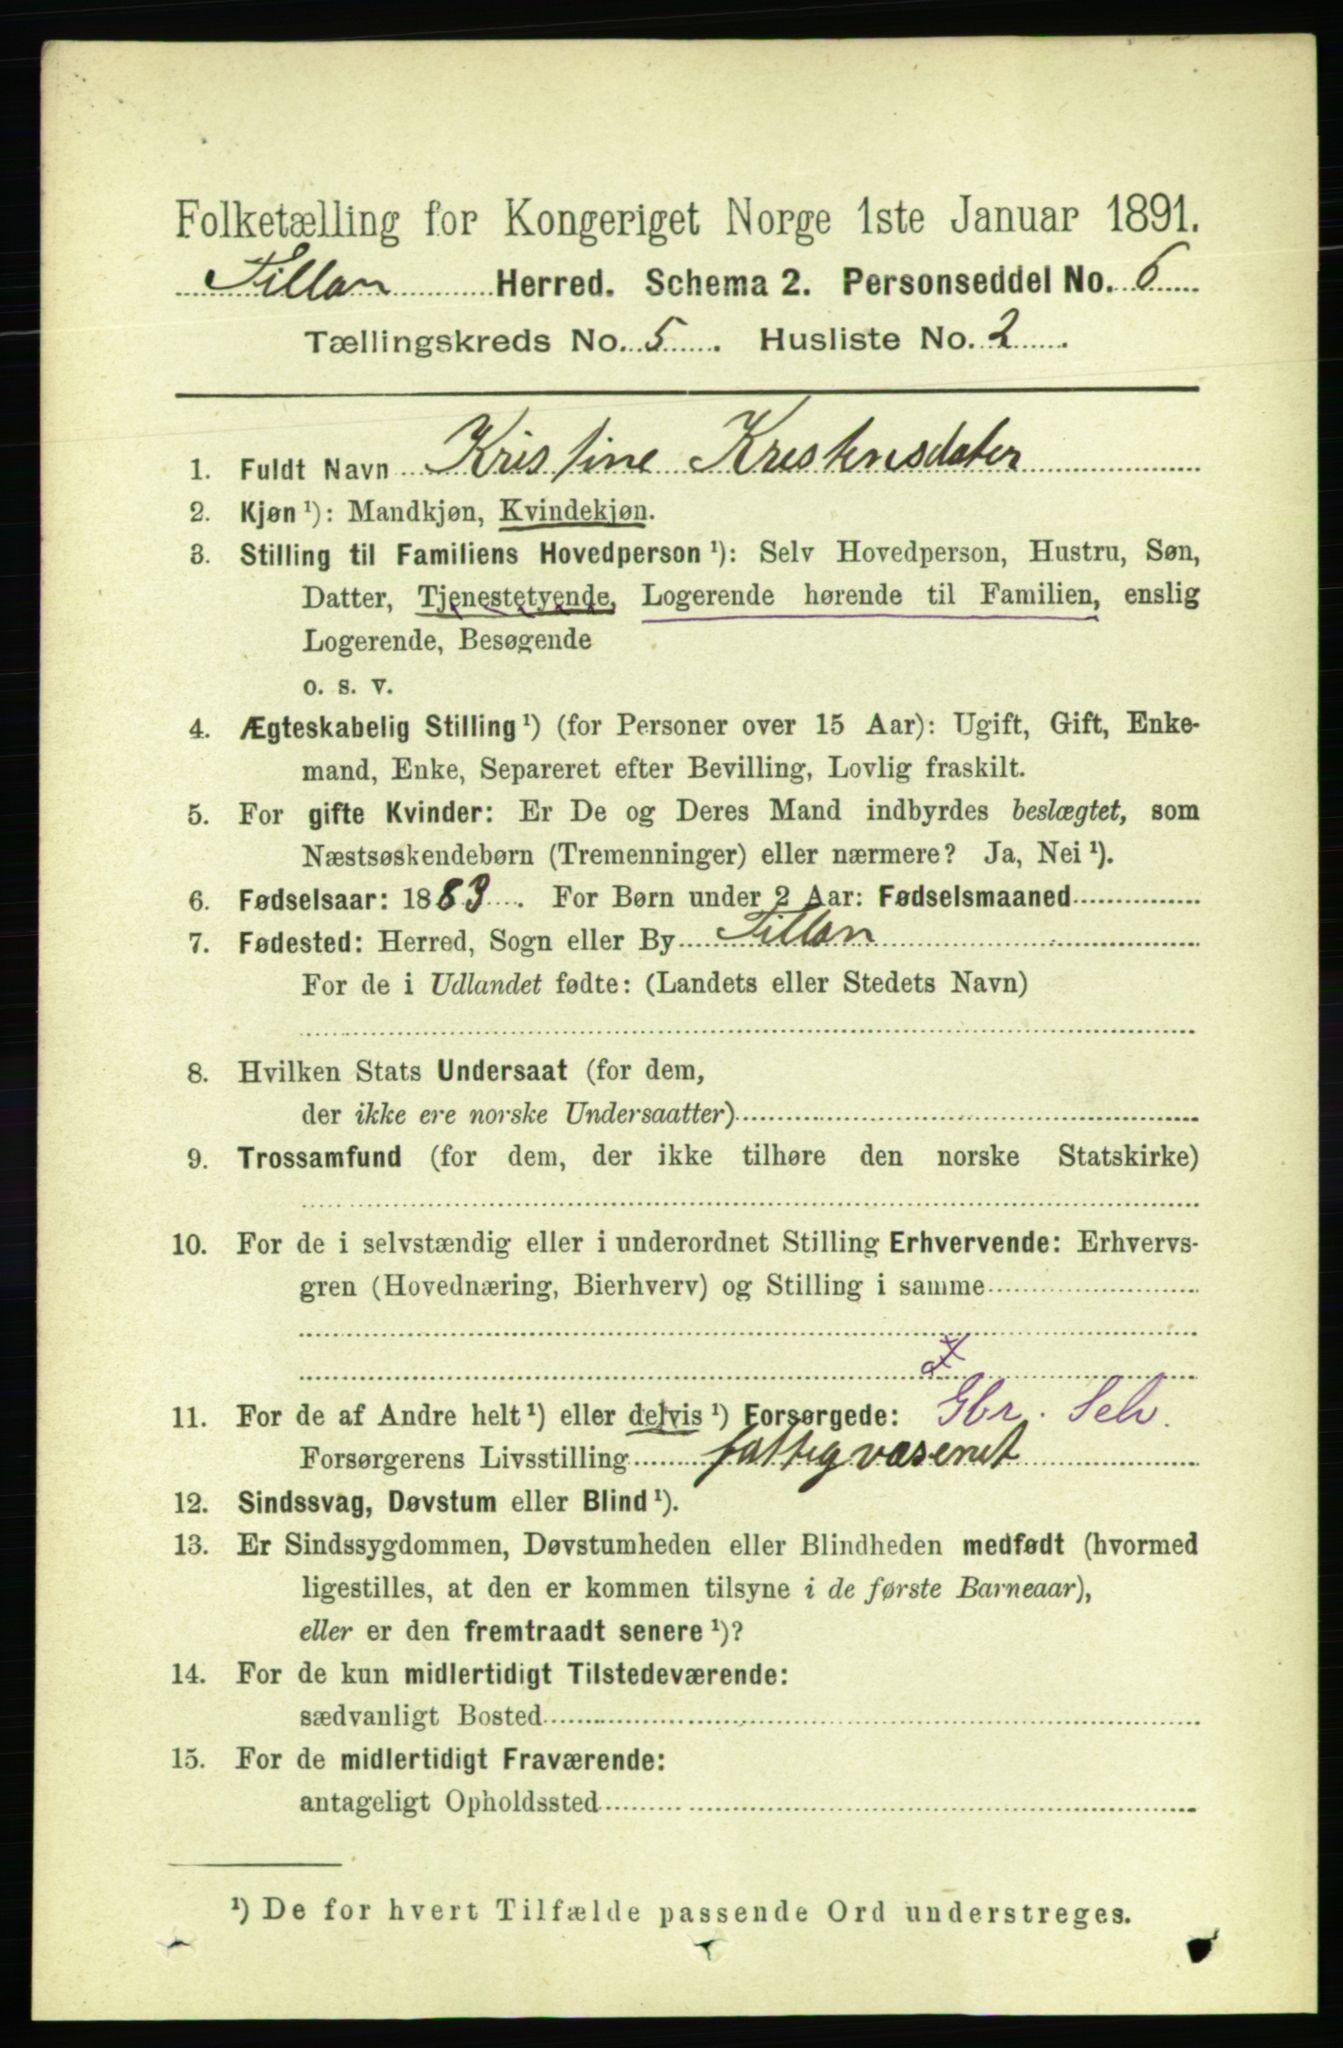 Folketælling for Kongeriget Norge 1ste Januar 1891.
Fillan Herred. Schema 2. Personseddel No. 6
Tællingskreds No. 5. Husliste No. 2.
1. Fuldt Navn Kristine Kristensdater
2. Kjøn ¹): Mandkjøn, Kvindekjøn.
3. Stilling til Familiens Hovedperson ¹): Selv Hovedperson, Hustru, Søn,
Datter, Tjenestetyende, Logerende hørende til Familien, enslig
Logerende, Besøgende
o. s. v.
4. Ægteskabelig Stilling ¹) (for Personer over 15 Aar): Ugift, Gift, Enke-
mand, Enke, Separeret efter Bevilling, Lovlig fraskilt.
5. For gifte Kvinder: Er De og Deres Mand indbyrdes beslægtet, som
Næstsøskendebørn (Tremenninger) eller nærmere? Ja, Nei ¹).
6. Fødselsaar: 1883. For Børn under 2 Aar: Fødselsmaaned
7. Fødested: Herred, Sogn eller By Fillan
For de i Udlandet fødte: (Landets eller Stedets Navn)
8. Hvilken Stats Undersaat (for dem,
der ikke ere norske Undersaatter)
9. Trossamfund (for dem, der ikke tilhøre den norske Statskirke)
10. For de i selvstændig eller i underordnet Stilling Erhvervende: Erhvervs-
gren (Hovednæring, Bierhverv) og Stilling i samme
11. For de af Andre helt ¹) eller delvis ¹) Forsørgede: Gbr. Selv.
Forsørgerens Livsstilling fattigvæsenet
12. Sindssvag, Døvstum eller Blind ¹).
13. Er Sindssygdommen, Døvstumheden eller Blindheden medfødt (hvormed
ligestilles, at den er kommen tilsyne i de første Barneaar),
eller er den fremtraadt senere ¹)?
14. For de kun midlertidigt Tilstedeværende:
sædvanligt Bosted
15. For de midlertidigt Fraværende:
antageligt Opholdssted
¹) De for hvert Tilfælde passende Ord understreges.